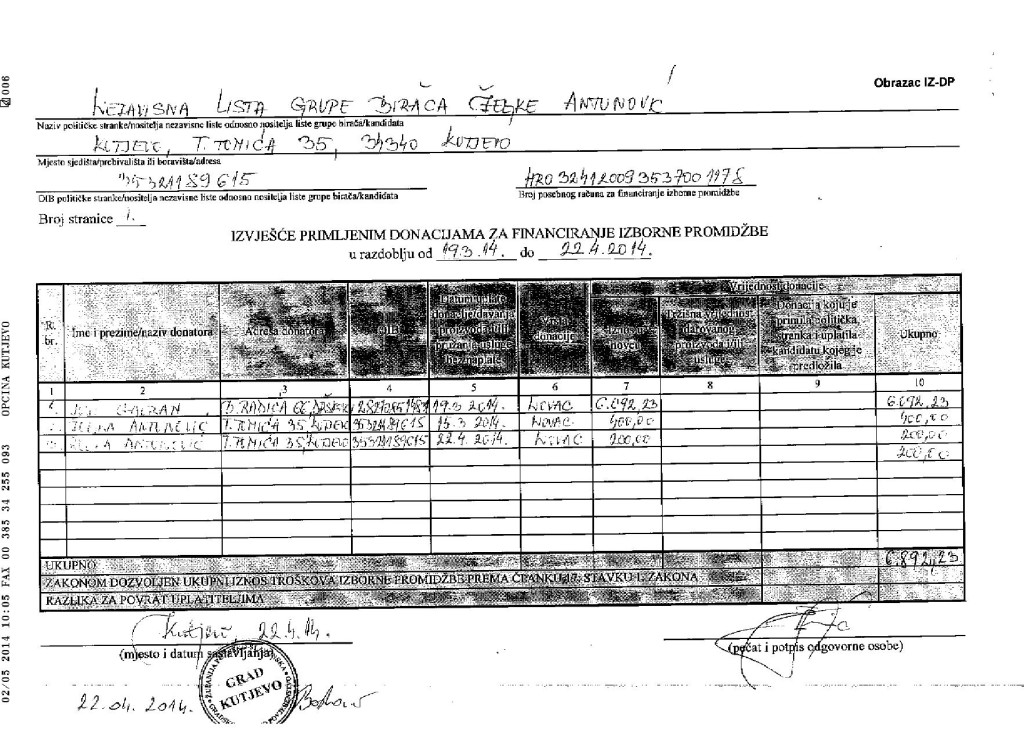 Obrazac IZ-DP
NEZAVISNA LISTA GRUPE BIRAČA ŽELJKE ANTUNOVIĆ
Naziv političke stranke/nositelja nezavisne liste odnosno nositelja liste grupe birača/kandidata
KUTJEVO, T. TOMIĆA 35, 34340 KUTJEVO
Mjesto sjedišta/prebivališta ili boravišta/adresa
35321189615
OIB političke stranke/nositelja nezavisne liste odnosno nositelja liste grupe birača/kandidata
Broj posebnog računa za financiranje izborne promidžbe
Broj stranice 1.
IZVJEŠĆE PRIMLJENIM DONACIJAMA ZA FINANCIRANJE IZBORNE PROMIDŽBE
u razdoblju od 19.3.14. do 22.4.2014.
Vrijednosti donacije
R. br. Ime i prezime/naziv donatora Adresa donatora OIB Datum uplate donacije/davanja proizvoda ili pružanja usluge bez naplate Vrsta donacije Iznos u novcu Tržišna vrijednost darovanog proizvoda ili usluge Donacija koju je primila politička stranka i uplatila kandidatu kojeg je predložila Ukupno
1 2 3 4 5 6 7 8 9 10
19.3.2014. NOVAC 6.092,23 6.092,23
T. TOMIĆA 35, 2014. NOVAC 400,00 400,00
T. TOMIĆA 35, 22.4.2014. NOVAC 200,00 200,00
200,00
UKUPNO 6.892,23
ZAKONOM DOZVOLJEN UKUPNI IZNOS TROŠKOVA IZBORNE PROMIDŽBE PREMA ČLANKU 17. STAVKU 1. ZAKONA
RAZLIKA ZA POVRAT UPLATITELJIMA
Kutjevo, 22.4.14.
(mjesto i datum sastavljanja)
(pečat i potpis odgovorne osobe)
GRAD
KUTJEVO
22.04.2014.
02/05 2014 10:05 FAX 00 385 34 255 093 OPCINA KUTJEVO 006